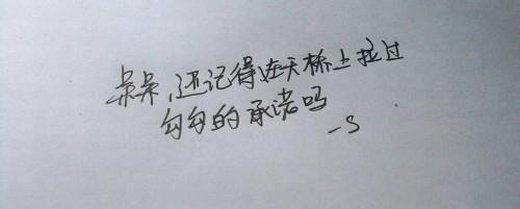 呆呆,还记得在天桥上拉过
勾勾的承诺吗
-S